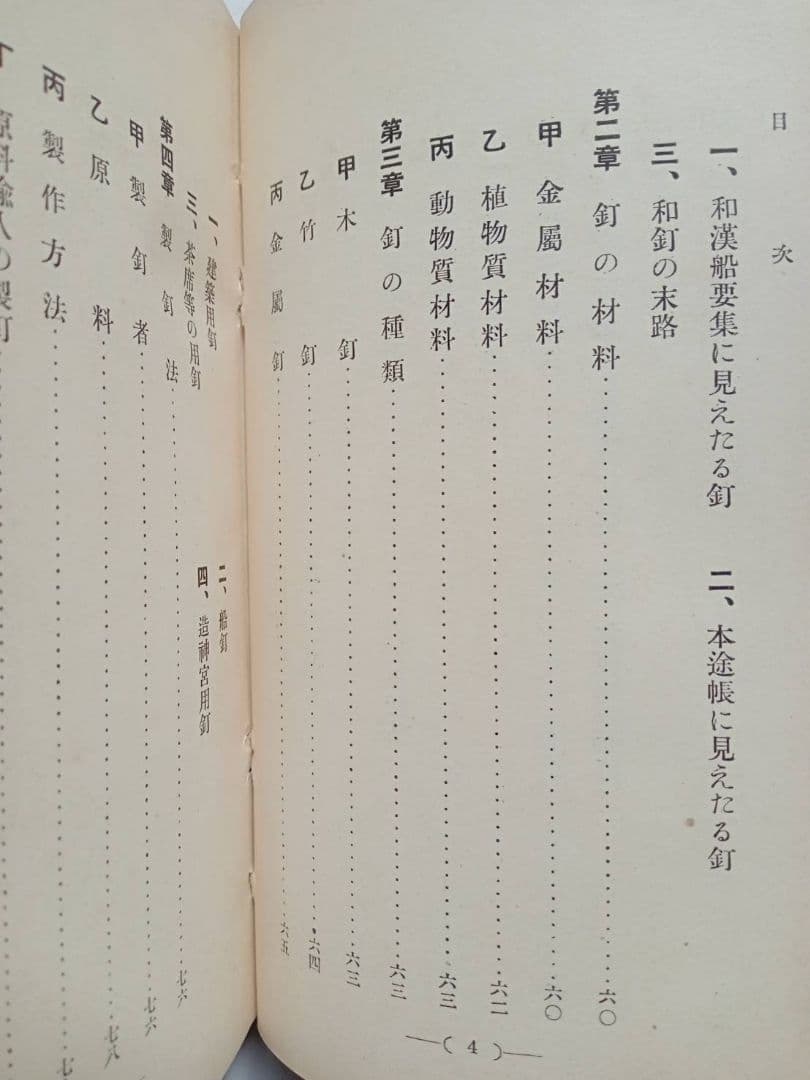 目次
一、和漢船要集に見えたる釘 二、本途帳に見えたる釘
三、和釘の末路
第二章 釘の材料……六〇
甲 金屬材料……六〇
乙 植物質材料……六二
丙 動物質材料……六三
第三章 釘の種類……六三
甲 木釘……六三
乙 竹釘……六四
丙 金屬釘……六五
—( 4 )—
一、建築用釘 二、船釘
三、茶席等の用釘 四、造神宮用釘
第四章 製釘法……七六
甲 製釘者……七六
乙 原料……七八
丙 製作方法……七
原料輸入の製釘